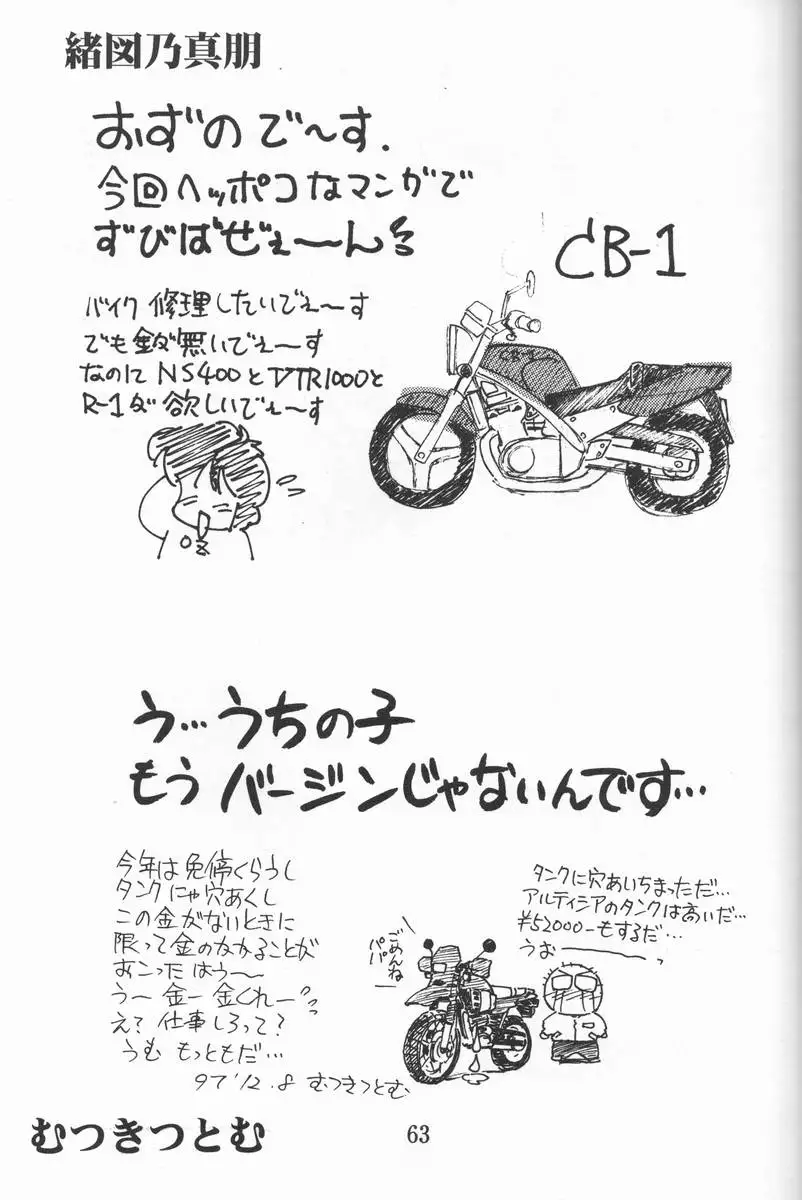 緒図乃真朋
おずの で〜す.
今回ヘッポコなマンガで
ずびばぜぇ〜〜ん
CB-1
バイク 修理したいでぇーす
でも金が無いでぇーす
なのに NS400とVTR1000と
R-1が欲しいでぇーす
CB-1
OZ
う…うちの子
もう バージンじゃないんです…
今年は免停くらうし
タンクにゃ穴あくし
この金がないときに
限って金のかかることが
おこったはう〜
うー 金ー 金くれー
え? 仕事しろって?
うむ もっともだ…
97'12.8 むつきつとむ
ごめんね
パパー
タンクに穴あいちまっただ…
アルティシアのタンクは高いだ…
¥52000-もするだ…
うおーーっ
むつきつとむ
63